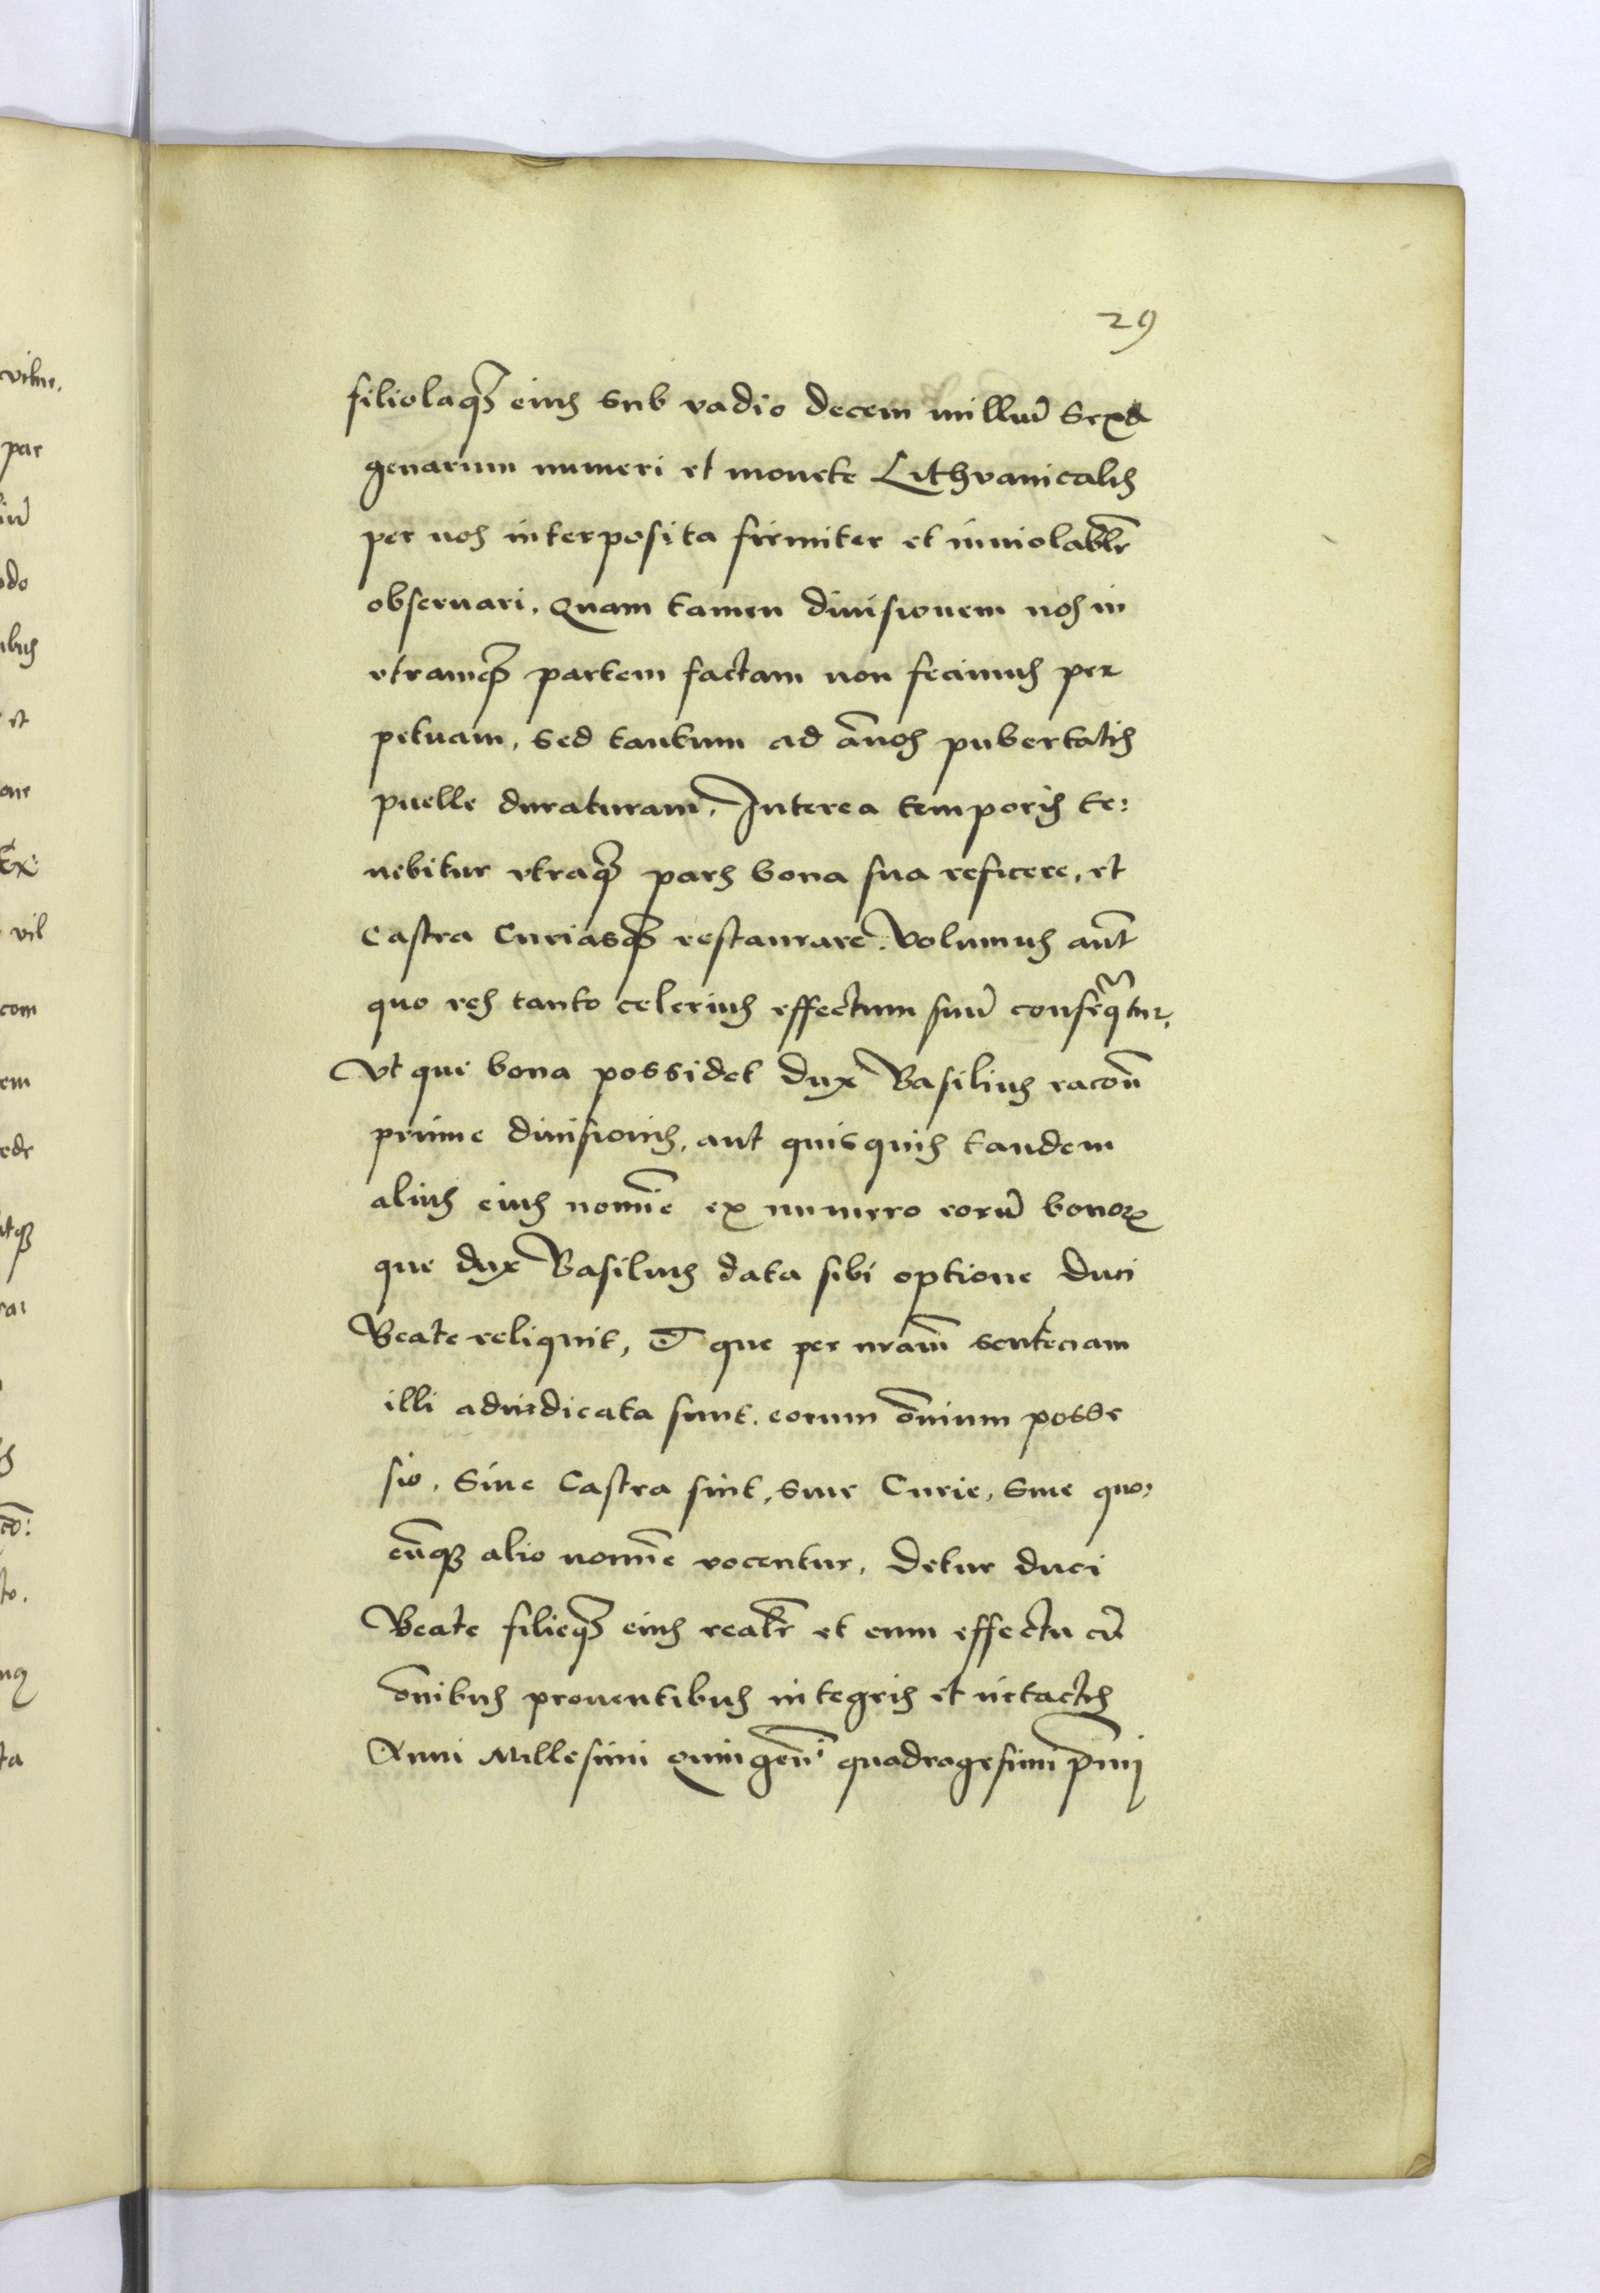 29
filiolaqꝫ eius sub vadio decem milliū Sexa
genarum numeri et monete Lithvanicalis
per nos interposita firmiter et inuiolabłr
obseruari. Quam tamen diuisionem nos in
vtramqꝫ partem factam non fecimus per
petuam, sed tantum ad ānos pubertatis
puelle duraturam, Interea temporis te:
nebitur vtraqꝫ pars bona sua reficere, et
Castra Curiasqꝫ restaurare. Volumus aūt
quo res tanto celerius effectum suū conseqtur,
Vt qui bona possidet Dux Basilius racoū
prime diuisionis, aut quisquis tandem
alius eius nomīe ex numero eorū bonoꝝ
que dux Basilius data sibi optione Duci
Beate reliquit, Et que per nrām sentenciam
illi adiudicata sunt, eorum ōnium posse
sio, Siue Castra sint, siue Curie, Siue quo,
cūqꝫ alio nomīe vocentur, Detur duci
Beate filieqꝫ eius realr̄ et cum effectu cū
ōnibus prouentibus integris et intactis
Anni Millesimi Quingenͭⁱ quadragesimi p̄mi